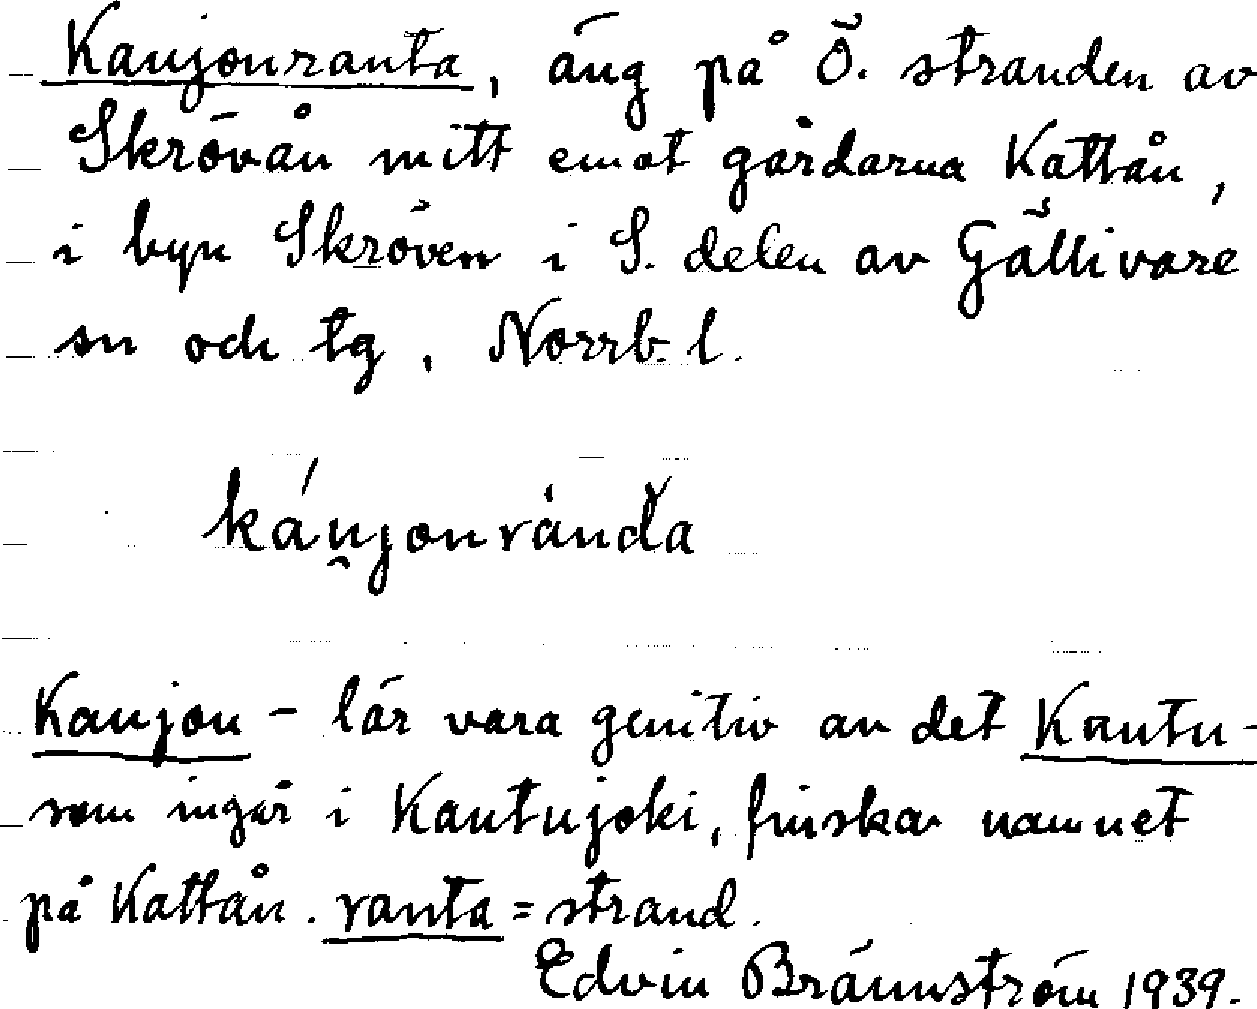 Kaujonranta, äng på Ö. stranden av
Skrövån mitt emot gårdarna Kattån,
i byn Skröven i S. delen av Gällivare
sn och tg, Norrb. l.
káu̯jonrànda
Kaujon - lär vara genitiv av det Kautu-
som ingår i Kautujoki, finska namnet
på Kattån. ranta = strand.
Edvin Brännström 1939.